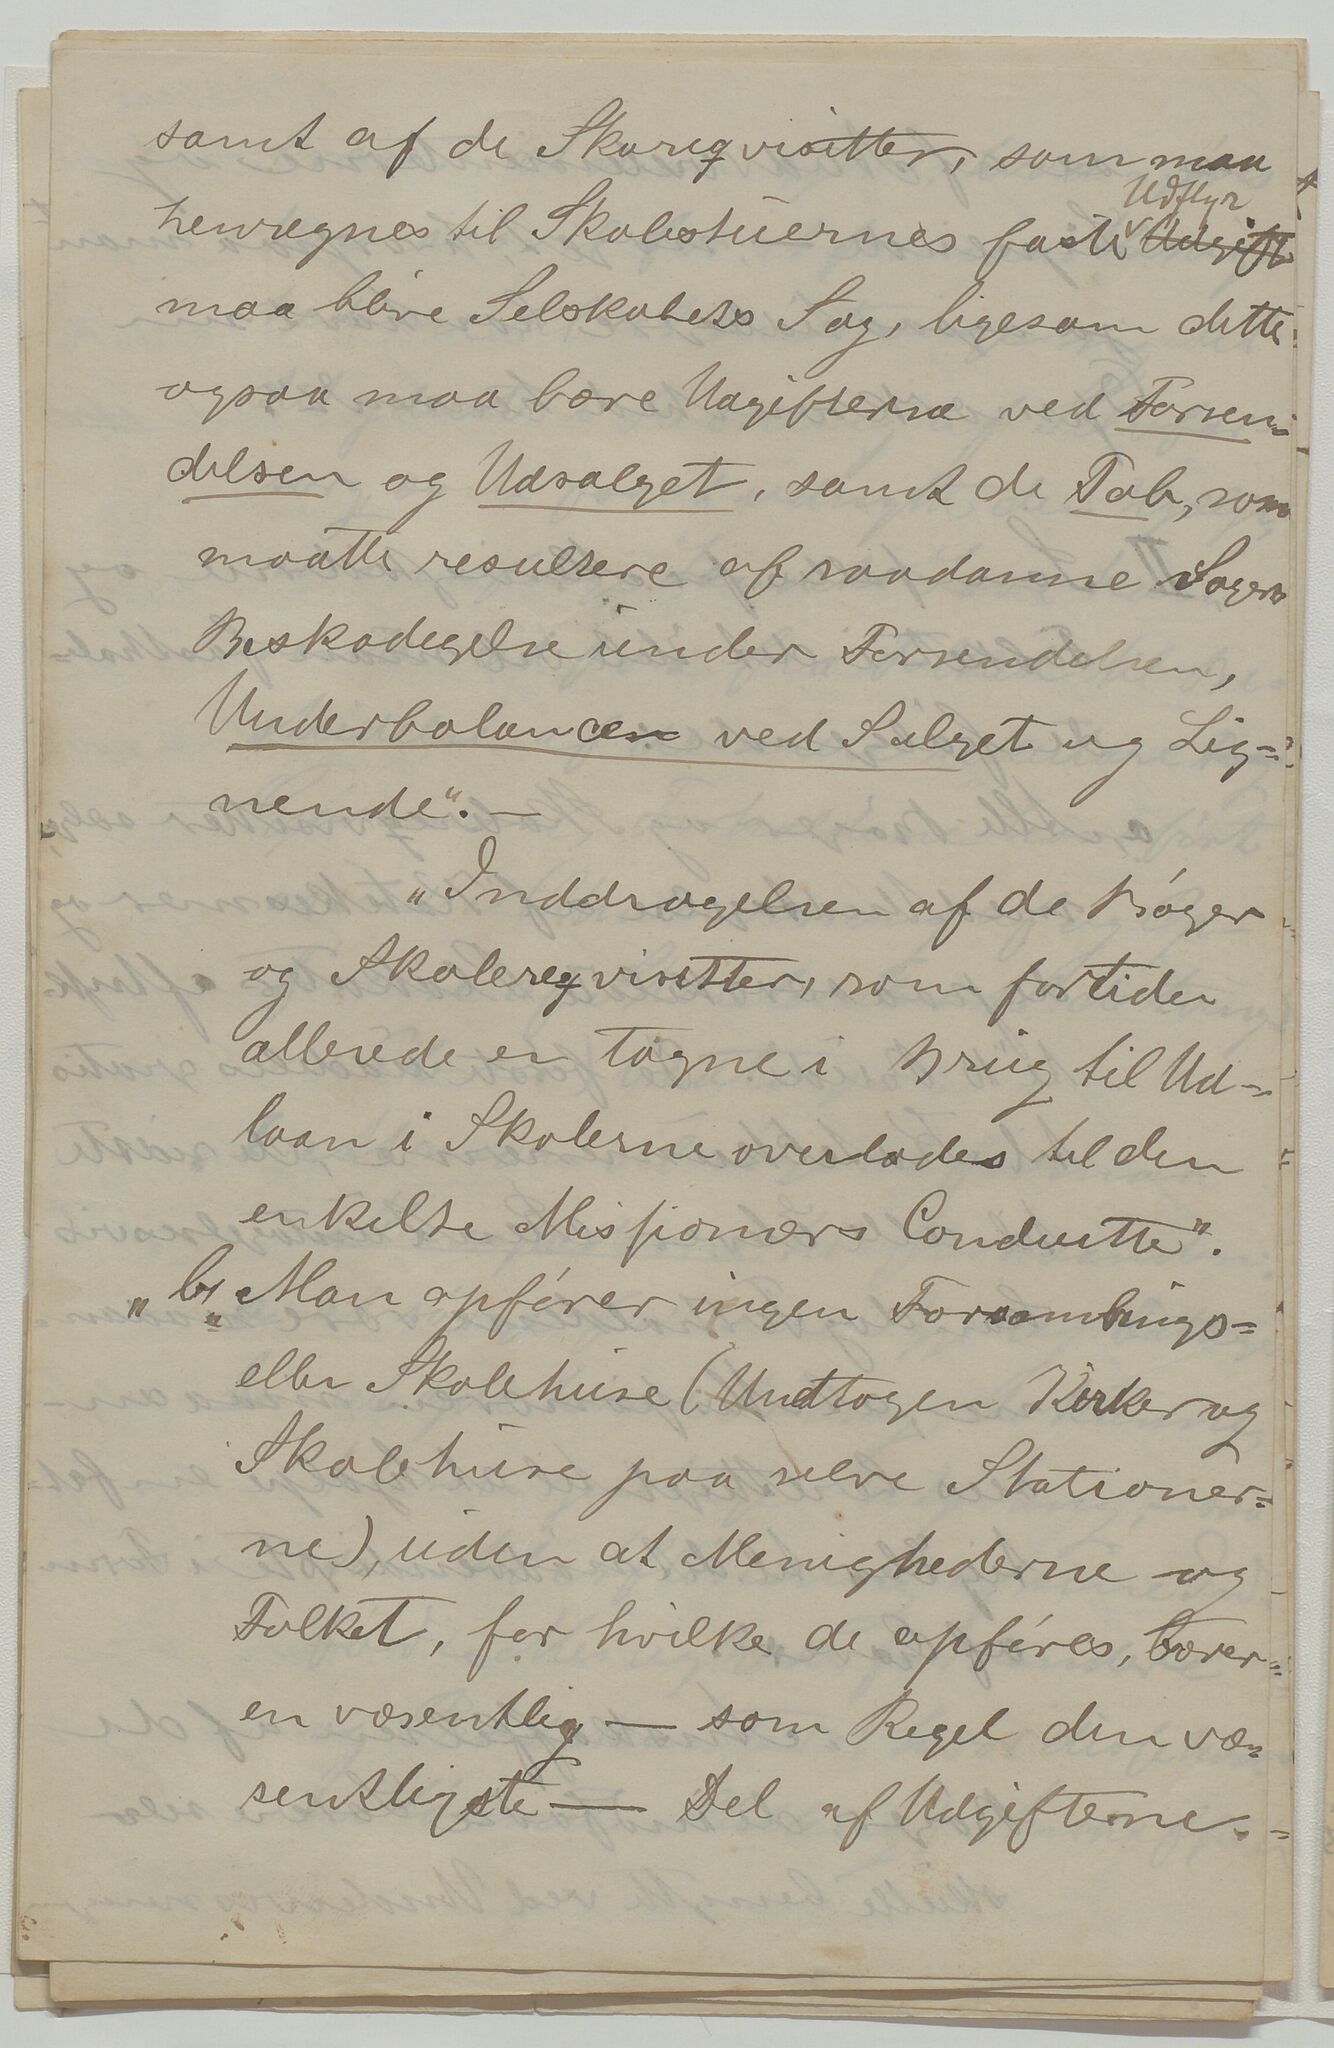 samt af de Skoreqvisitter, som maa
Udstyr
henregnes til Skolestuernes faste Udgift
maa blive Selskabets Sag, ligesom dette
ogsaa maa bære Udgifterne ved Forsen-
delsen og Udsalget, samt de Tab, som
maatte resultere af saadanne Sagers
Beskadigelse under Forsendelsen,
Underbalancen ved Salget og Lig-
nende“. —
„Inddragelsen af de Bøger
og Skolereqvisitter, som fortiden
allerede er tagne i Brug til Ud-
laan i Skolerne overlades til den
enkelte Missionærs Conduitte“.
„b, Man opfører ingen Forsamlings-
eller Skolehuse (Undtagen Kirker og
Skolehuse paa selve Stationer-
ne), uden at Menighederne og
Folket, for hvilke de opføres, bærer
en væsentlig — som Regel den væ-
sentligste — Del af Udgifterne.